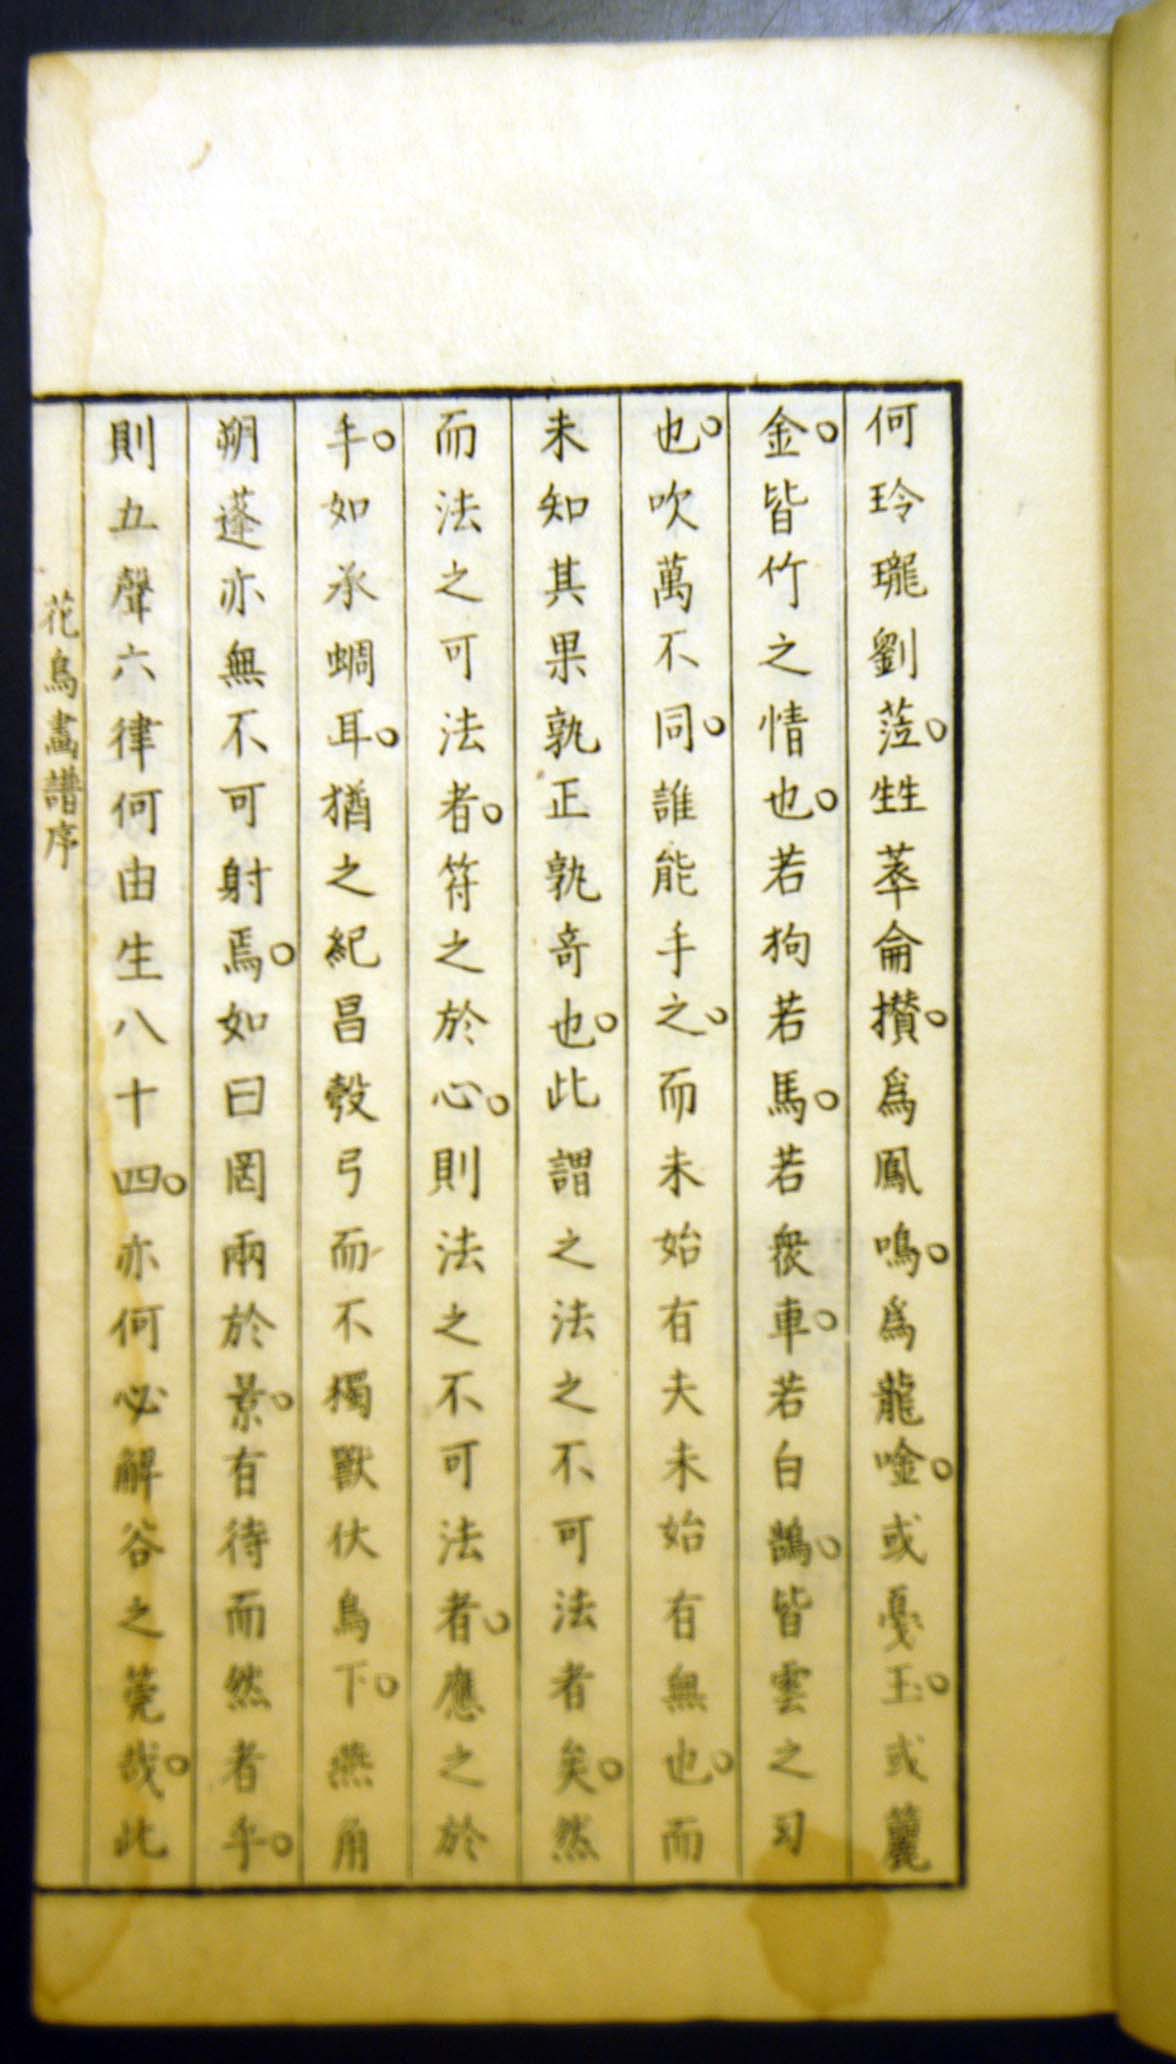 何玲瓏劉莅。甡萃侖攢。爲鳳鳴。爲龍唫。或戞玉。或簏
金。皆竹之情也。若狗若馬。若衆車。若白鵠。皆雲之幻
也。吹萬不同。誰能手之。而未始有夫未始有無也。而
未知其果孰正孰竒也。此謂之法之不可法者矣。然
而法之可法者。符之於心。則法之不可法者。應之於
手。如承蜩耳。猶之紀昌彀弓而不獨獸伏鳥下。燕角
朔蓬亦無不可射焉。如曰罔兩於景。有待而然者乎。
則五聲六律何由生八十四。亦何必解谷之筦哉。此
花鳥畵譜序